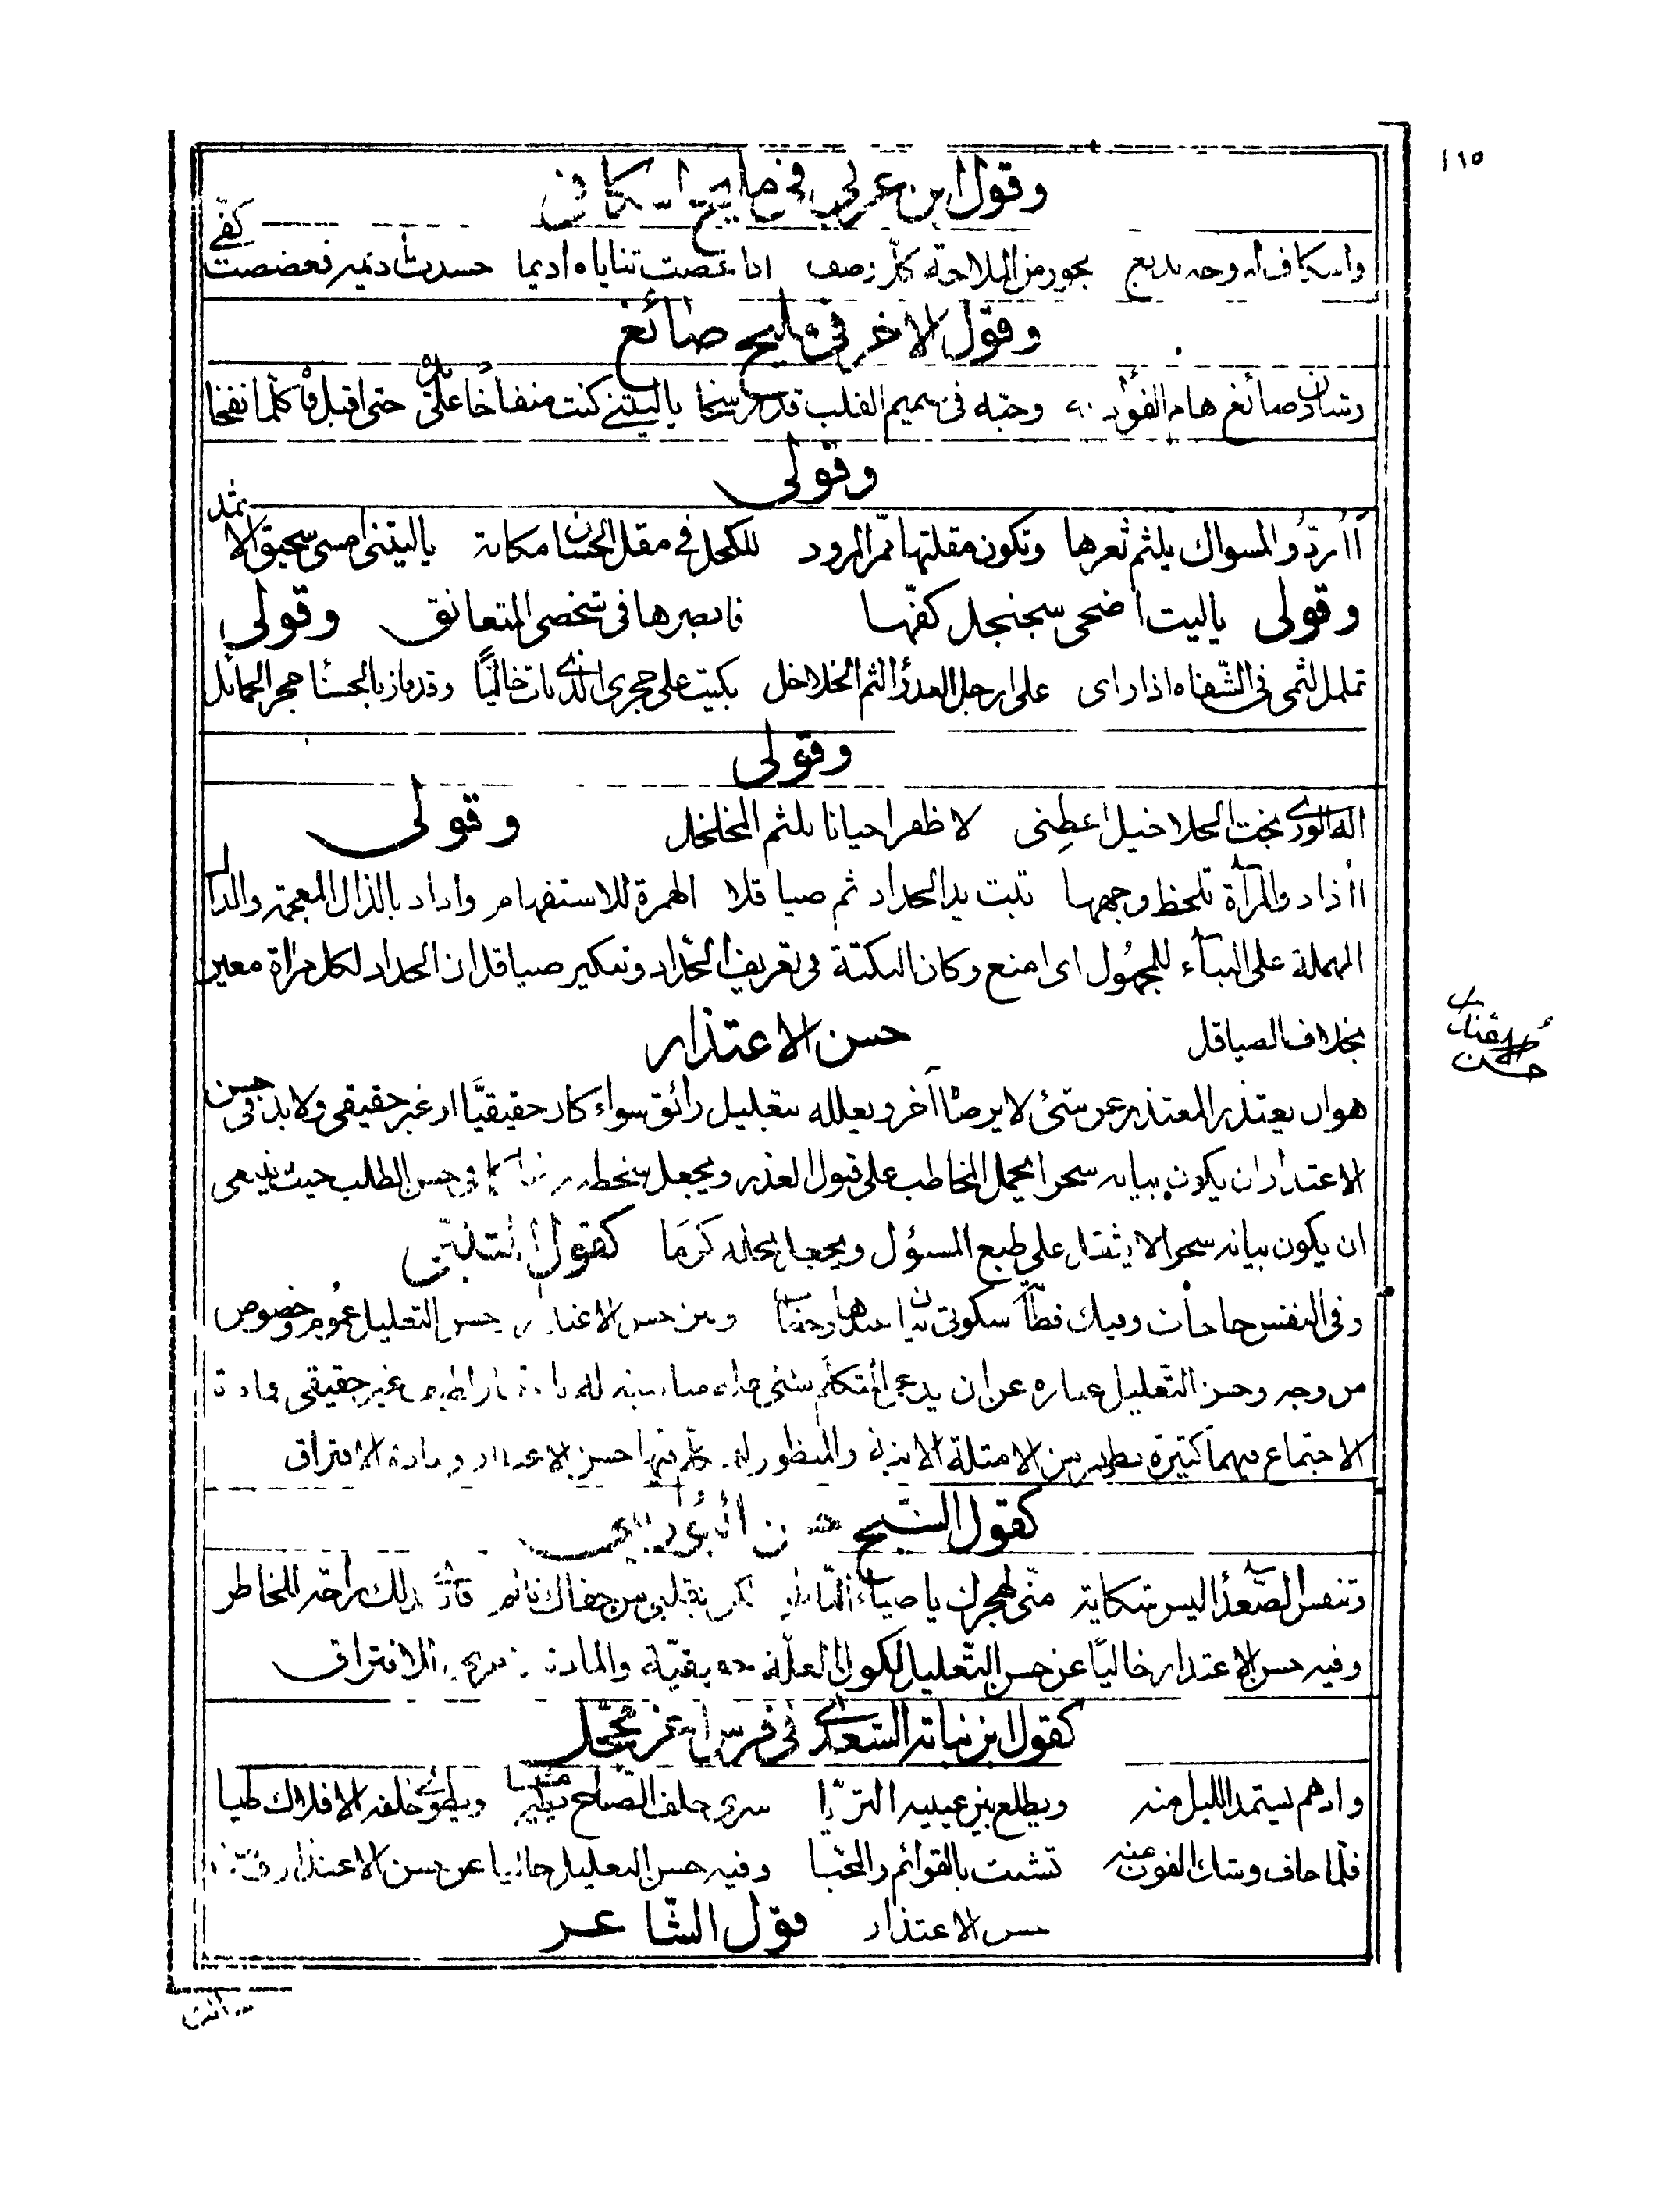 ١١٥
وقول ابن عربي في مليح اسكافي
واسكاف له وجه بديع يحوز من الملاحة كل وصف اذا عضت ثناياه اديما حسدت اديمه فعضضت كفي
وقول الاخر في مليح صائغ
وشادن صائغ هام الفؤاد به وحبه في صميم القلب قد رسخا ياليتني كنت منفاخا على فمه حتى اقبل فاه كلما نفخا
وقولي
أأرد والمسواك يلثم ثغرها وتكون مقلتها ممر المرود للكحل في مقل الحسان مكانة ياليتني امسى سحيق الاثمد
وقولي ياليت اضحى سجنجل كفها فابصرها في شخصي المتعانق وقولي
تململ لثمي في الشفاه اذا راى على ارجل الغدر الثم الخلاخل بكيت على حجري الذي بات خاليا وقد فاز بالحسنا حجر الحمائل
وقولي
اله الورى بخت الخلاخيل اعطني لاظفر احيانا بلثم المخلخل وقولي
أأذاد والمرآة تلحظ وجهها تبت يد الحداد ثم صياقلا الهمزة للاستفهام واذاد بالذال المعجمة والدال
المهملة على البناء للمجهول اى امنع وكان النكتة في تعريف الحداد وتنكير صياقل ان الحداد لكل مرآة معين
بخلاف الصياقل حسن الاعتذار
هو ان يعتذر المعتذر عن شئ لا يرضاه آخر ويعلله بتعليل رائق سواء كان حقيقيا او غير حقيقي ولا بد في حسن
الاعتذار ان يكون بيانه سحرا يحمل المخاطب على قبول العذر ويجعل سخطه رضا كما في حسن الطلب حيث ينبغي
ان يكون بيانه سحرا لا يثقل على طبع المسؤل ويجعل بخله كرما كقول المتنبي
وفي النفس حاجات وفيك فطانة سكوتي بيان عندها وخطاب وبين حسن الاعتذار وحسن التعليل عموم وخصوص
من وجه وحسن التعليل عبارة عن ان يدعى المتكلم لشئ علة مناسبة له باعتبار لطيف غير حقيقي فمادة
الاجتماع فيهما كثيرة يظهر من الامثلة الاتية والمنظور فيها حسن الاعتذار ومادة الافتراق
كقول الشيخ
وتنفس الصعداء ليس شكاية مني لهجرك يا ضياء الناظر لكن بقلبي من جفاك فارى ذلك راحة للخاطر
وفيه حسن الاعتذار خاليا عن حسن التعليل لكون العلة حقيقية والمادة الاخرى للافتراق
كقول ابن نباتة السعدي في فرس اغر محجل
وادهم يستمد الليل منه ويطلع بين عينيه الثريا سرى خلف الصباح يطير مشيا ويطوى خلفه الافلاك طيا
فلما خاف وشك الفوت منه تشبث بالقوائم والمحيا وفيه حسن التعليل خاليا عن حسن الاعتذار
حسن الاعتذار قول الشاعر
حسن الاعتذار